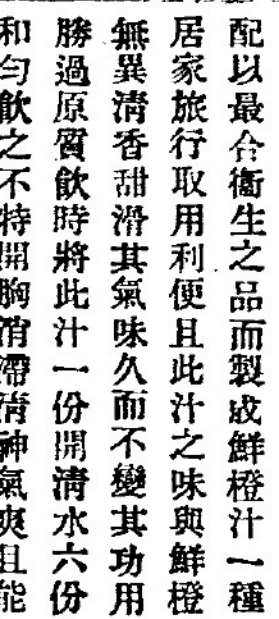 配以最合衞生之品而製成鮮橙汁一種
居家旅行取用利便且此汁之味與鮮橙
無異淸香甜滑其氣味久而不變其功用
勝過原質飮時將此汁一份開淸水六份
和勻飮之不特開胸消滯淸神氣爽且能